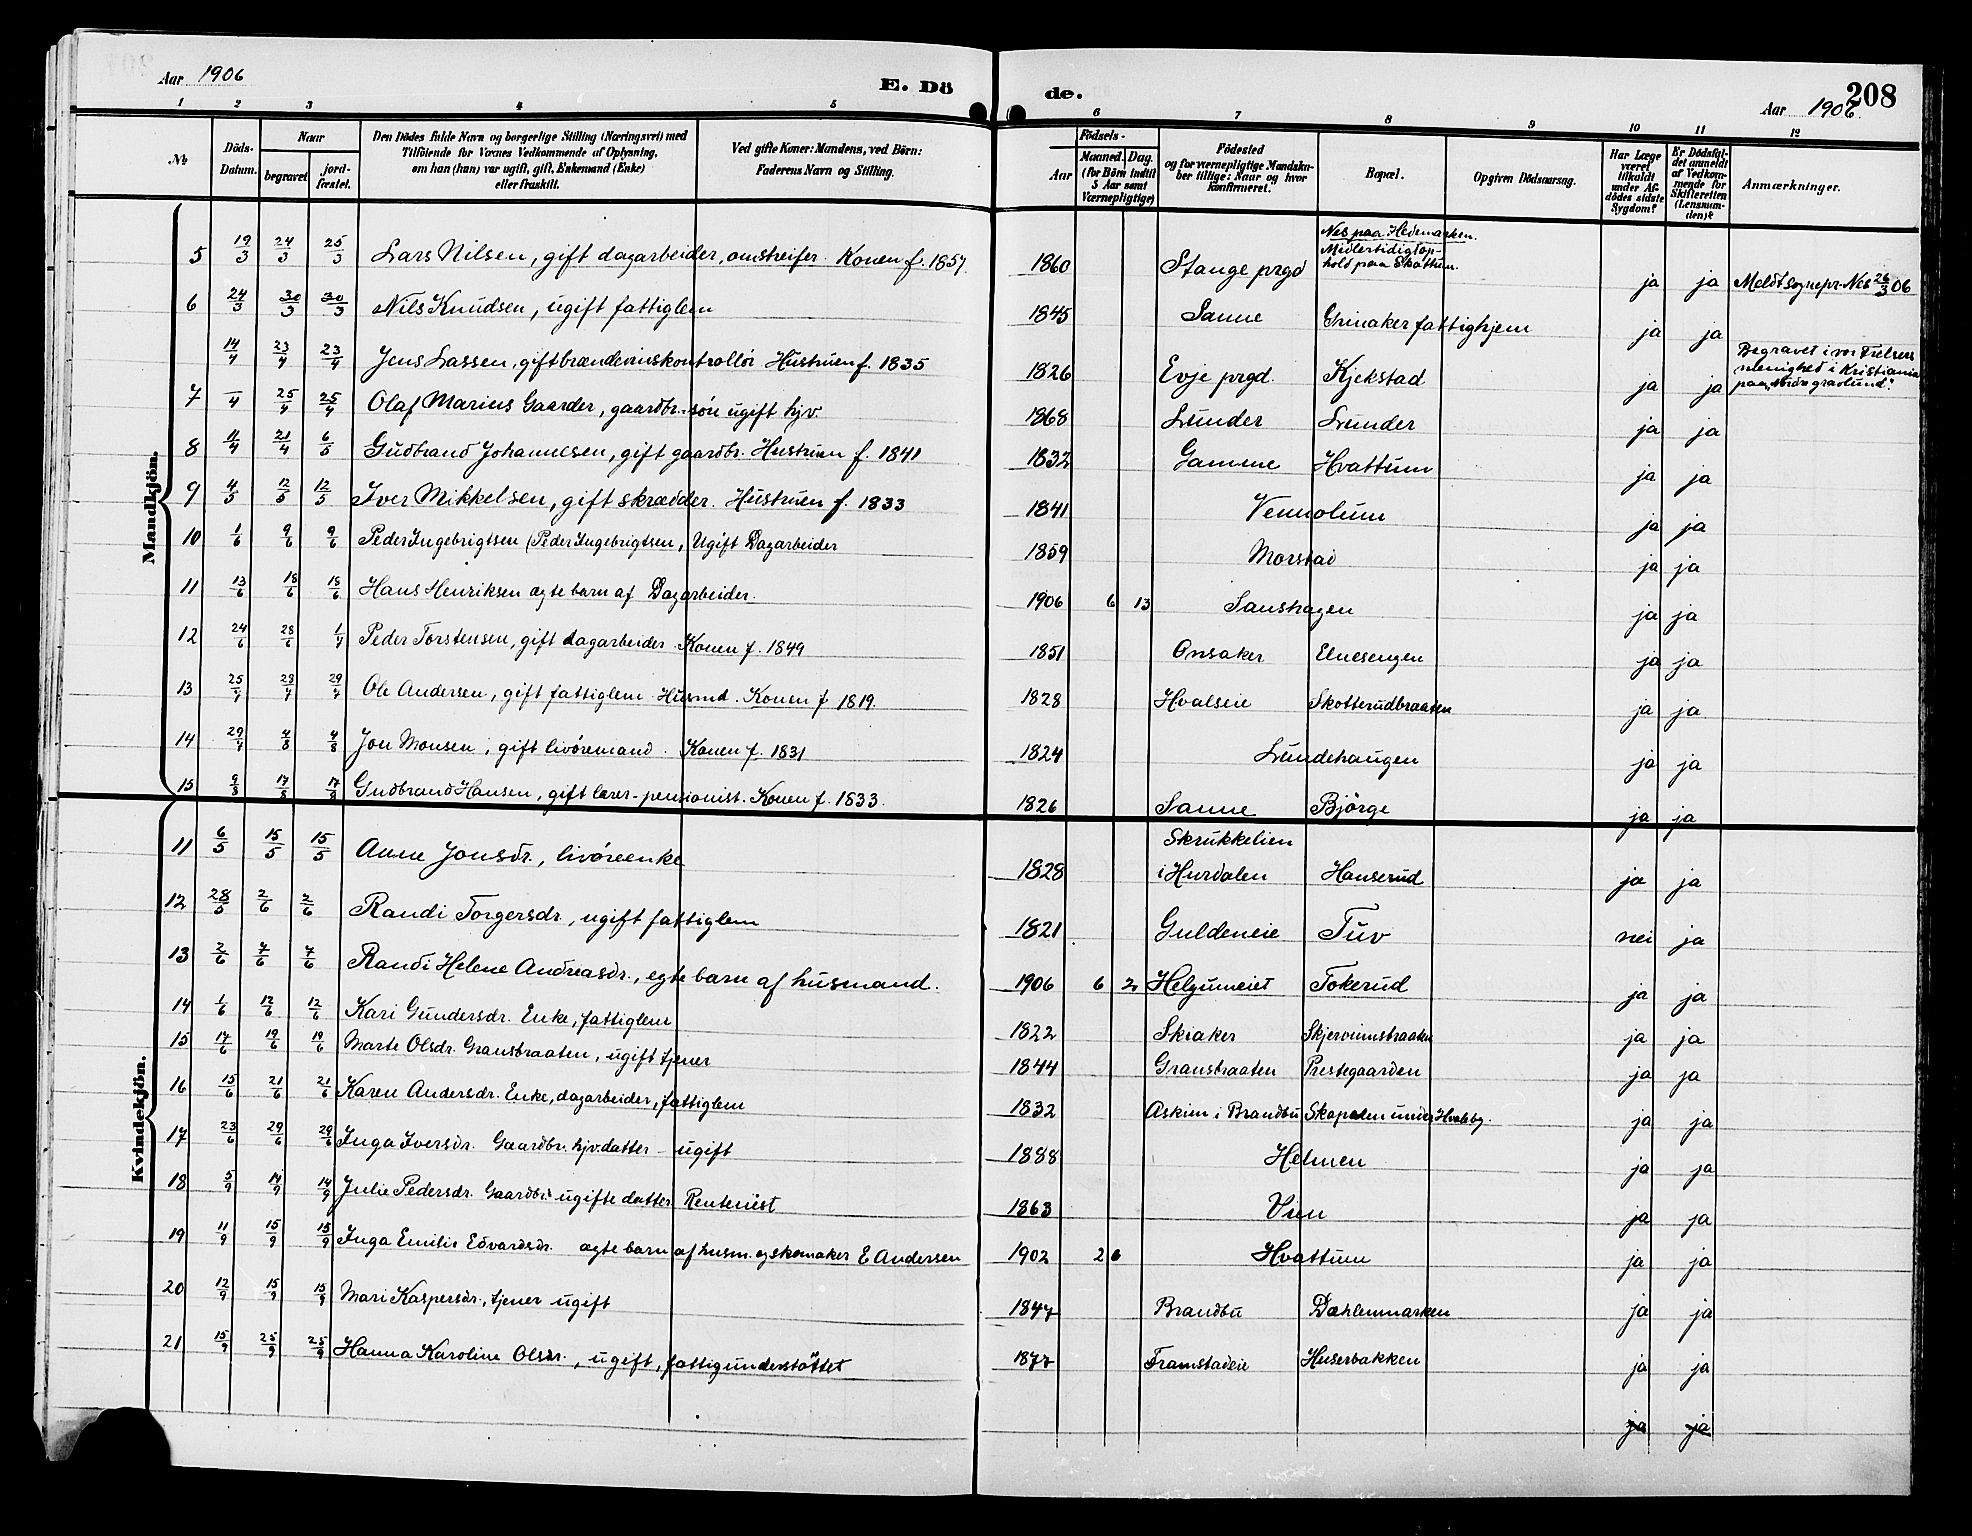 Aar 1906 E. Dö de. Aar 1906 208
1 2 3 4 5 6 7 8 9 10 11 12
No Döds-Datum. Naar begravet jord-fæstet. Den Dödes fulde Navn og borgerlige Stilling (Næringsvei) med Tilföiende for Voxnes Vedkommende af Oplysning, om han (hun) var ugift, gift, Enkemand (Enke) eller fraskilt. Ved gifte Koner: Mandens, ved Börn: Faderens Navn og Stilling. Födsels- Aar Maaned. Dag. (for Börn indtil 5 Aar samt Værnepligtige) Födested og for værnepligtige Mandskaber tillige: Naar og hvor konfirmeret. Bopæl. Opgiven Dödsaarsag. Har Læge været tilkaldt under Afdödes sidste Sygdom? Er Dödsfaldet anmeldt af Vedkommende for Skifteretten (Lensmanden)? Anmærkninger.
Mandkjön.
5 19/3 24/3 25/3 Lars Nilsen, gift dagarbeider, omstreifer. Konen f. 1857. 1860 Stange prgd Nes paa Hedemarken. Midlertidig op-hold paa Skattum. ja ja Meldt sognepr. Nes 26/3 06
6 24/3 30/3 30/3 Nils Knudsen, ugift fattiglem 1845 Sanne Grinaker fattighjem ja ja
14/4 23/4 23/4 Jens Lassen, gift brændevinskontrollör Hustruen f. 1835 1826 Evje prgd. Kjekstad ja ja Begravet i vor Frelsers menighed i Kristiania paa gravlund.
7 –/4 25/4 25/4 Olaf Marius Gaarder, gaardbr.-sön ugift hjv. 1868 Lunder Lunder ja ja
8 11/4 21/4 6/5 Gudbrand Johannesen, gift gaardbr. Hustruen f. 1841 1832 Gamme Hvattum ja ja
9 4/5 12/5 12/5 Iver Mikkelsen, gift skrædder. Hustruen f. 1833 1841 Vennolum ja ja
10 1/6 9/6 9/6 Peder Ingebrigtsen (Peder Ingebrigtsen, Ugift Dagarbeider 1859 Morstad ja ja
11 13/6 18/6 18/6 Hans Henriksen ægte barn af Dagarbeider. 1906 6 13 Sanshagen ja ja
12 24/6 28/6 1/7 Peder Torstensen, gift dagarbeider. Konen f. 1849 1851 Onsaker Elnesengen ja ja
13 25/7 28/7 29/7 Ole Andersen, gift fattiglem. Husmd. Konen f 1819. 1828 Hvalseie Skotterudbraaten ja ja
14 29/7 4/8 4/8 Jon Monsen, gift livöremand. Konen f. 1831 1824 Lundehaugen ja ja
15 9/8 17/8 17/8 Gudbrand Hansen, gift lærer-pensionist. Konen f. 1833. 1826 Sanne Björge ja ja
Kvindekjön.
11 6/5 15/5 15/5 Anne Jonsdr., livöreenke 1828 Skrukkelien i Hurdalen Hanserud ja ja
12 28/5 2/6 2/6 Randi Torgersdr., ugift fattiglem 1821 Guldeneie Tuv nei ja
13 2/6 7/6 7/6 Randi Helene Andreasdr., egte barn af husmand. 1906 6 2 Helgumeiet Tokerud ja ja
14 1/6 12/6 12/6 Kari Gundersdr. Enke, fattiglem 1822 Skiaker Skjervumsbraaten ja ja
15 17/6 19/6 19/6 Marte Olsdr. Gransbraaten, ugift tjener 1844 Gransbraaten Prestegaarden ja ja
16 15/6 21/6 21/6 Karen Andersdr. Enke, dagarbeider, fattiglem 1832 Askim i Brandbu Skoparen under Hvaleby. ja ja
17 23/6 29/6 29/6 Inga Iversdr. Gaardbr. hjv. datter – ugift 1888 Helmen ja ja
18 5/9 14/9 14/9 Julie Pedersdr. Gaardbr. ugifte datter Rentenist 1863 Vien ja ja
19 11/9 15/9 15/9 Inga Emilie Edvardsdr. ægte barn af husm. og skomaker E Andersen 1902 2 6 Hvattum ja ja
20 12/9 15/9 15/9 Mari Kaspersdr., tjener ugift 1847 Brandbu Dæhlenmarken ja ja
21 15/9 25/9 25/9 Hanna Karoline Olsdr., ugift, fattigunderstöttet 1877 Framstadeie Huserbakken ja ja
ja ja